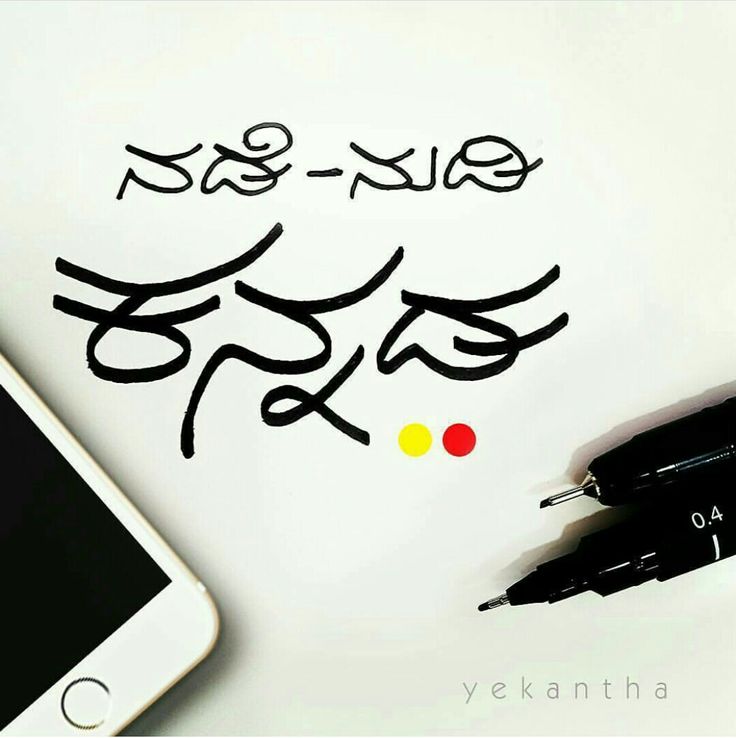 ನಡೆ-ನುಡಿ
ಕನ್ನಡ
0.4
yekantha